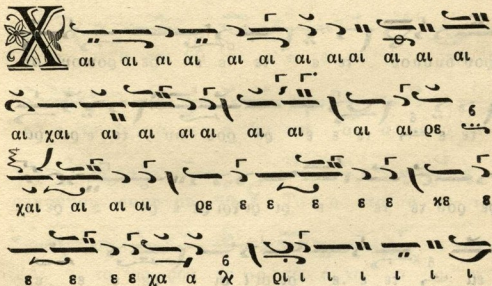 Χ αι αι αι αι αι αι αι αι αι αι αι
αι χαι αι αι αι αι αι αι αι αι ρε
χαι αι αι αι ρε ε ε ε ε ε χε ε
ε ε ε ε χα α ρι ι ι ι ι ι